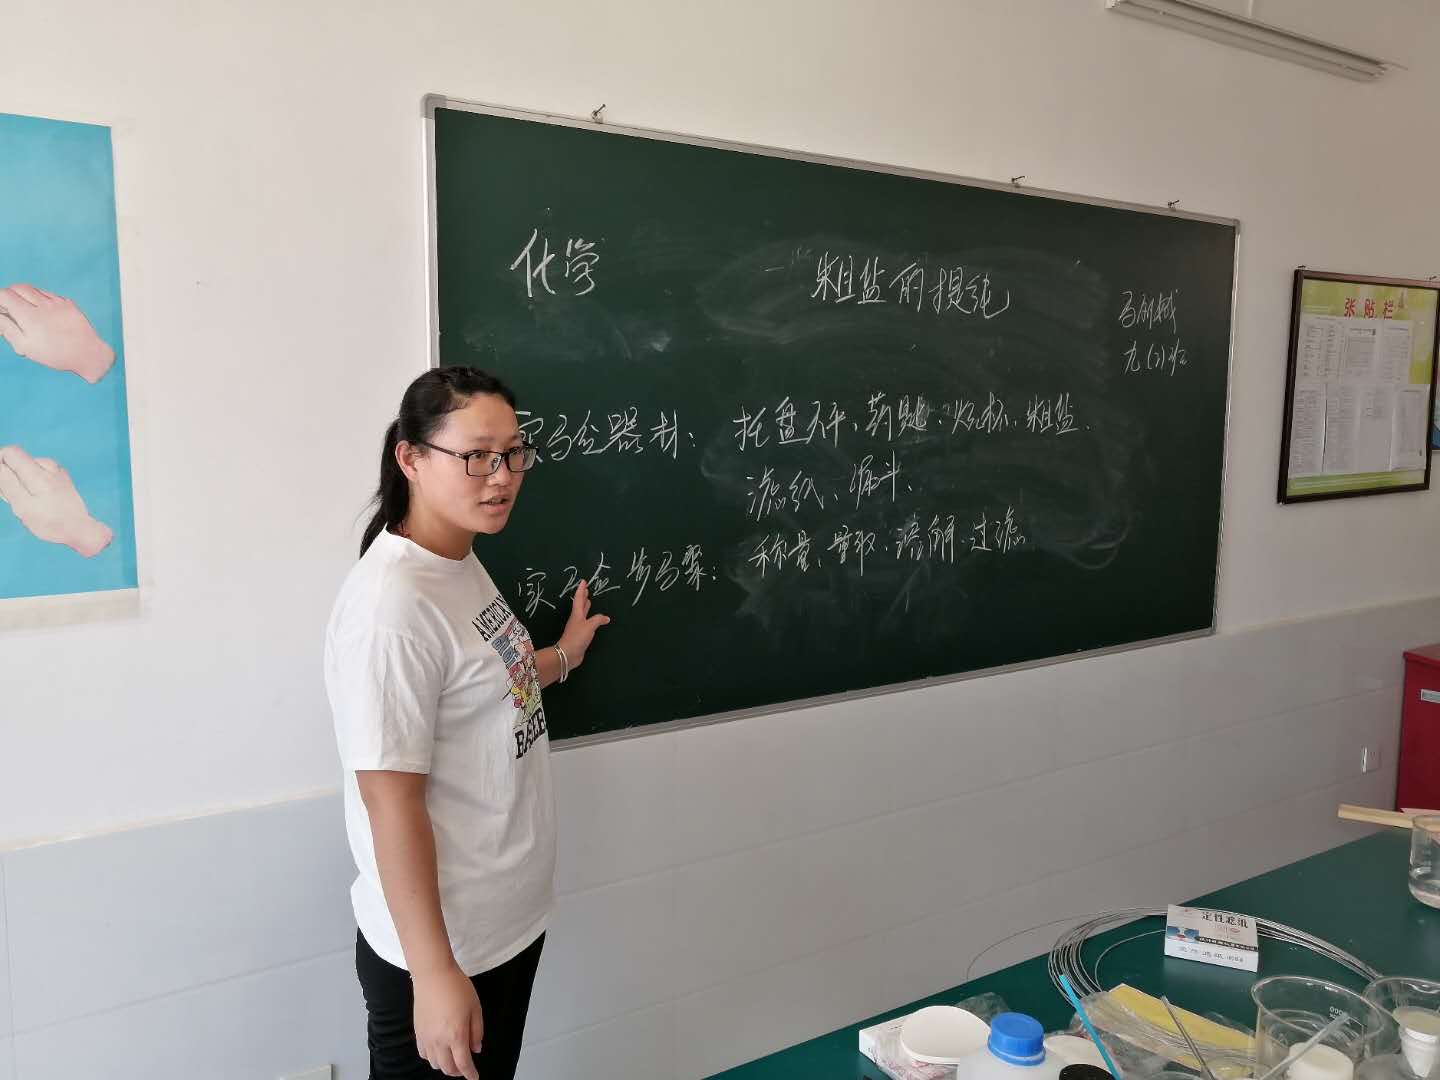 化学
一 粗盐的提纯
九(2)班
实验器材：托盘天平、药匙、烧杯、粗盐、
滤纸、漏斗、
实验步骤：称量、量取、溶解、过滤
张贴栏
AMERICAN
BASEB
定性滤纸